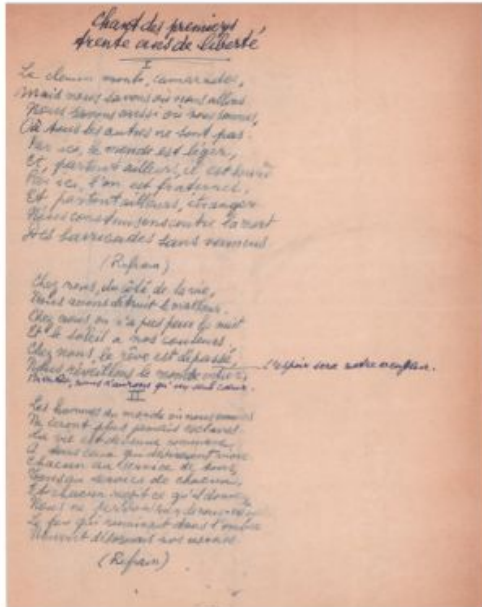 Chant des premiers
trente ans de liberté
I
Le chemin monte, camarades,
Mais nous savons où nous allons
Nous savons aussi où nous sommes,
Où tous les autres ne sont pas
Par ici, le monde est léger,
Et, partout ailleurs, il est lourd
Par ici, l'on est fraternel,
Et partout ailleurs, étranger
Nous construisons contre la mort
Des barricades sans
(Refrain)
Chez nous, du côté de la vie,
Nous avons détruit le malheur.
Chez nous on n'a pas peur la nuit
Et le soleil a nos couleurs.
Chez nous, le rêve est dépassé,
Nous réveillons le monde entier l'espoir sera notre
nous n'aurons qu'un seul cœur.
II
Les hommes du monde où nous sommes
Ne seront plus jamais esclaves
La vie est devenue commune
A tous ceux qui désiraient vivre
Chacun au service de tous,
Tous au service de chacun,
Et chacun reçoit ce qu'il donne
Nous ne
Le feu qui dans l'ombre
désormais nos
(Refrain)